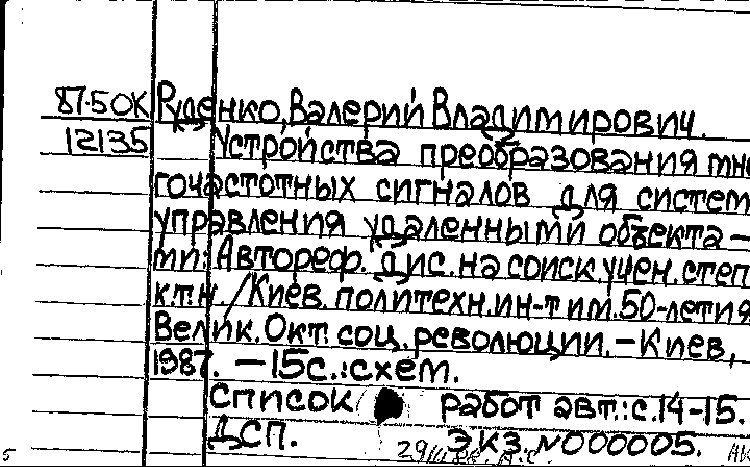 87-5 ОК Руденко, Валерий Владимирович.
12135 Устройства преобразования мно
гочастотных сигналов для систем
управления удаленными объекта-
ми: Автореф. дис. на соиск. учен. степ
к.т.н. /Киев. политехн. ин-т им. 50-летия
Велик. Окт. соц. революции. - Киев,
1987. - 15с.: схем.
Список работ авт.: с. 14-15.
ДСП. ЭКЗ. №000005.